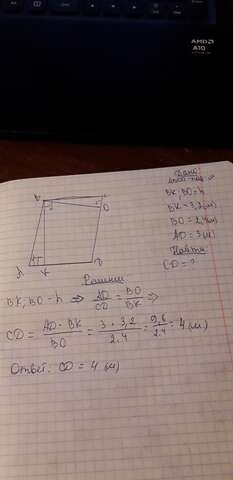 AMD
A10
Дано:
BK; BO = h
BK = 3,2 (м)
BO = 2,4 (м)
AD = 3 (м)
Найти
CD = ?
B
O
A
K
D
Решение
BK, BO - h ⇒ AD/CD = BO/BK ⇒
CD = AD · BK / BO = 3 · 3,2 / 2.4 = 9,6 / 2.4 = 4 (м)
Ответ: CD = 4 (м)